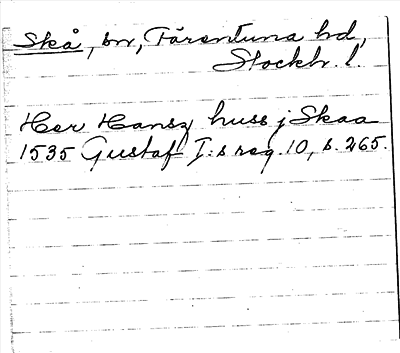 Skå, sn, Färentuna hd,
Stockh. l.
Her Hansz huss j Skaa
1535 Gustaf I:s reg. 10, s. 265.